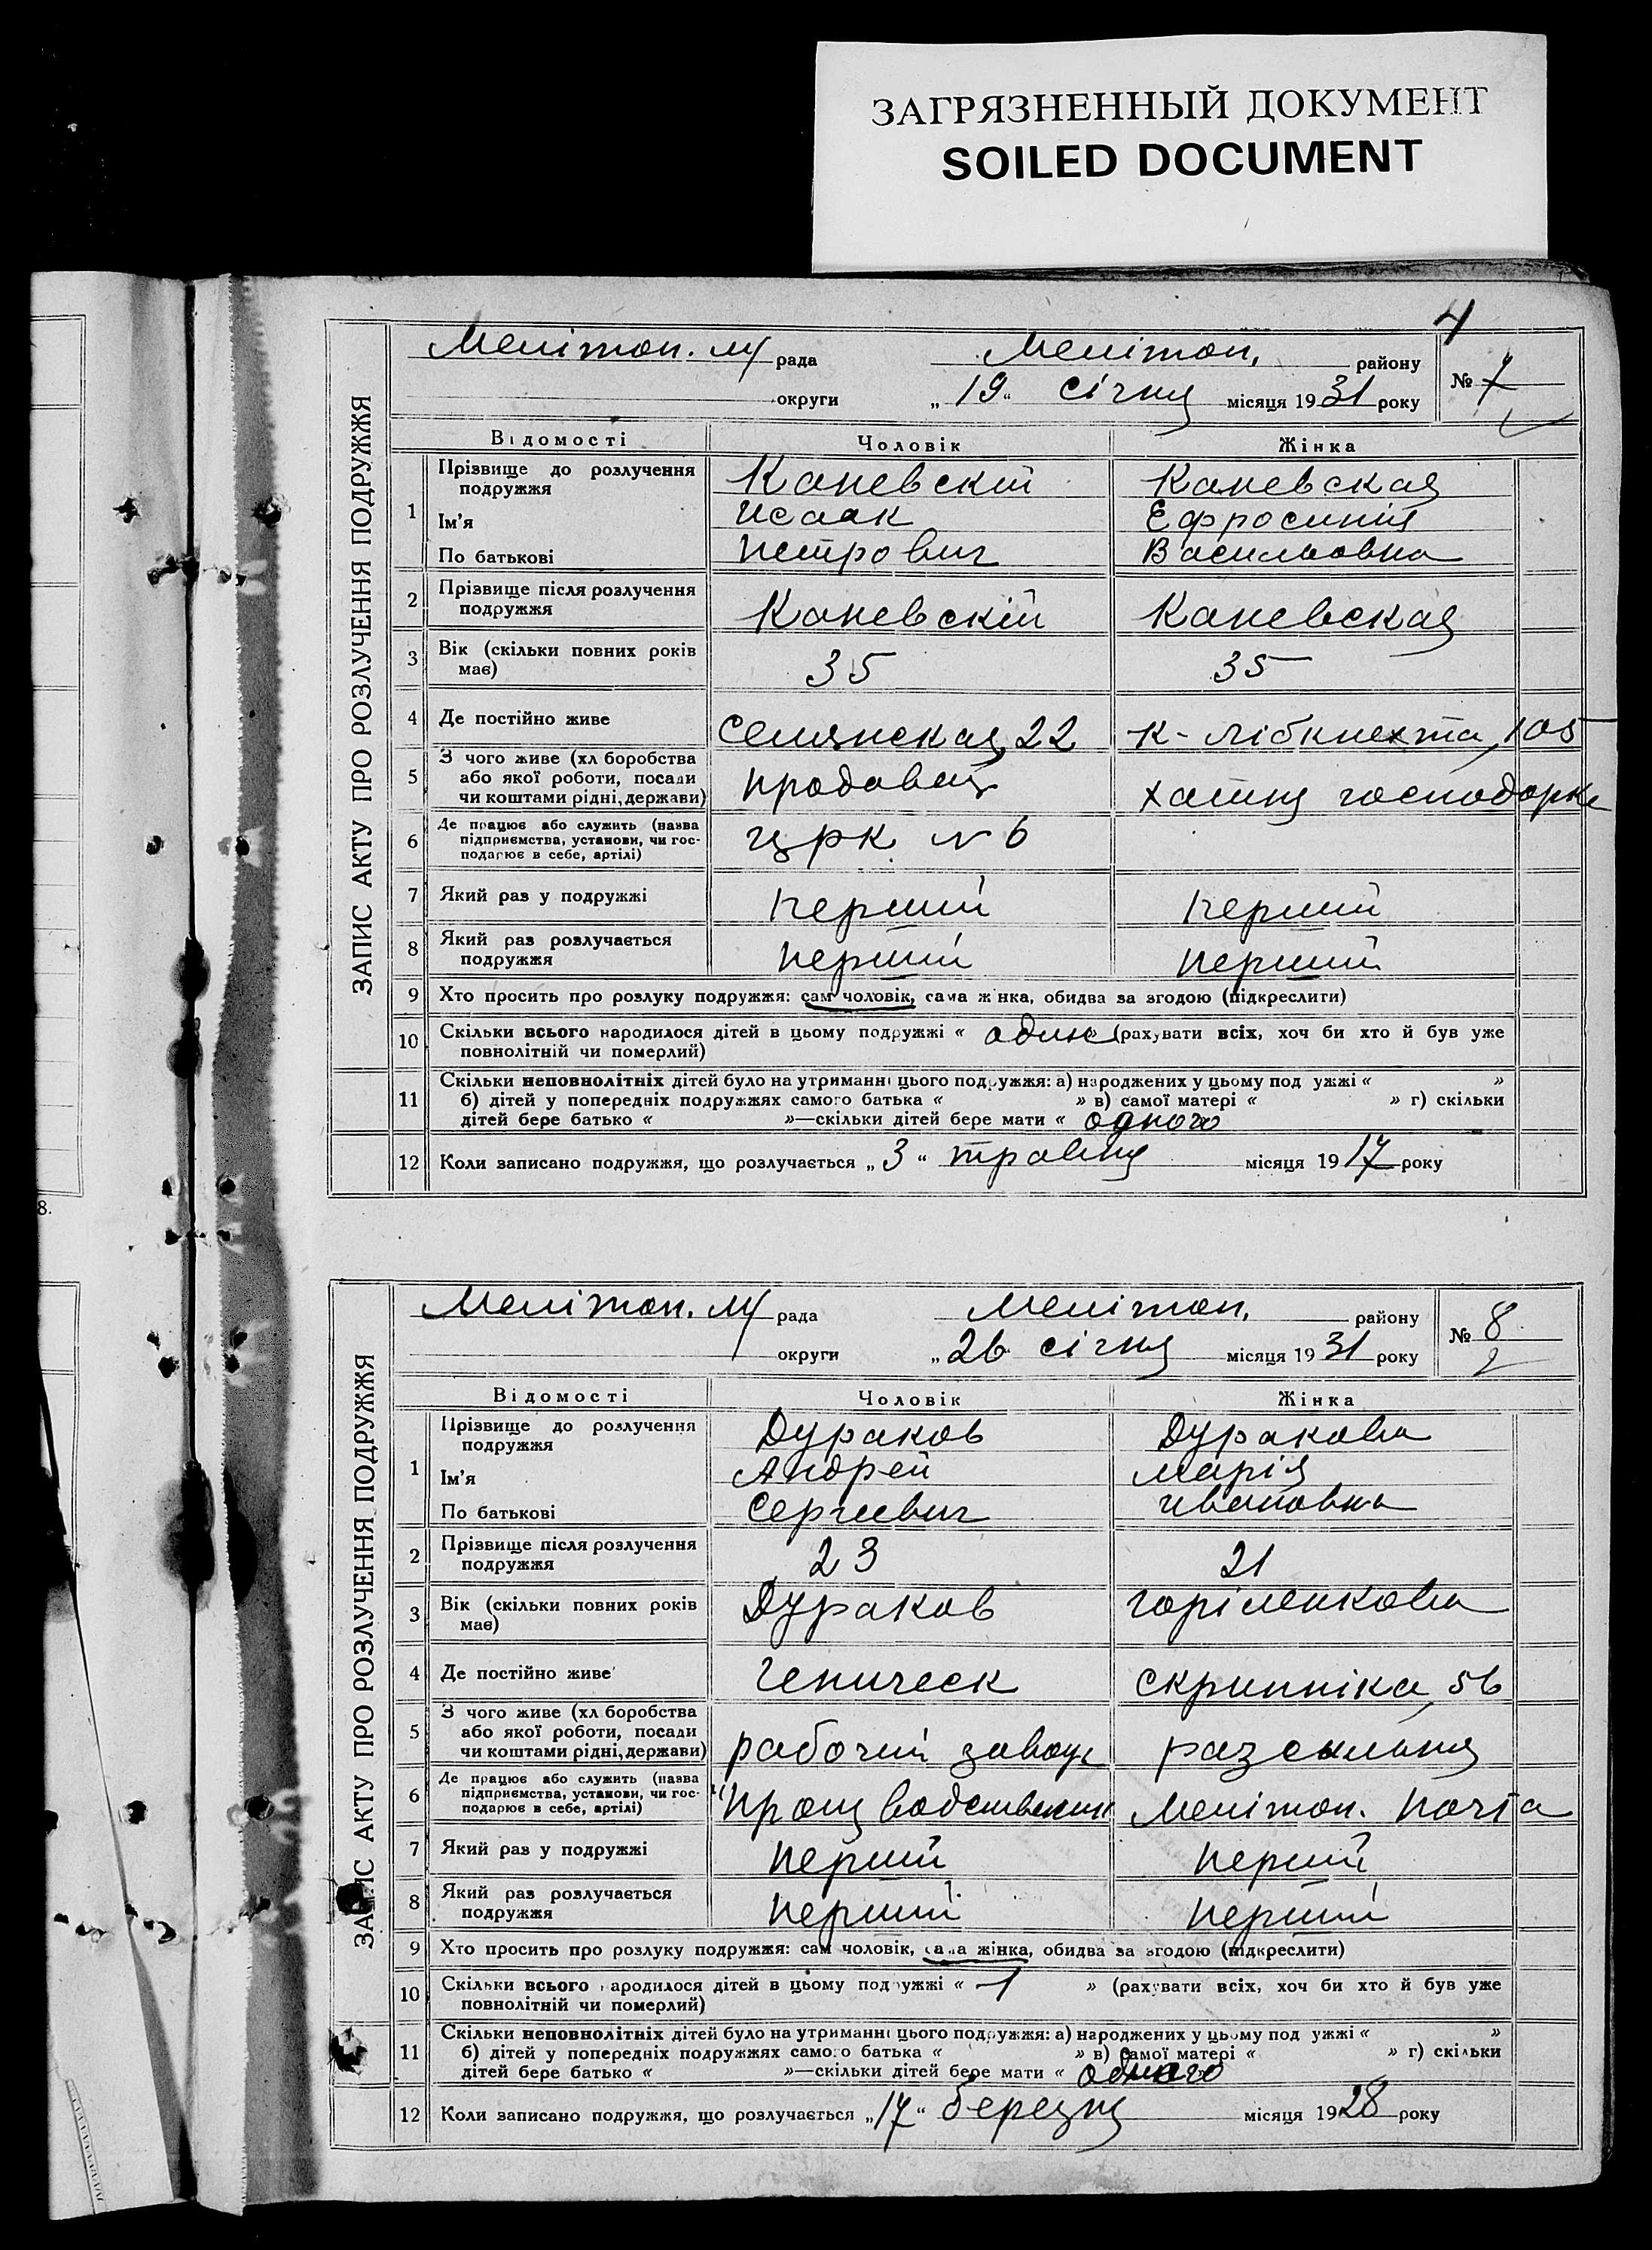 ЗАГРЯЗНЕННЫЙ ДОКУМЕНТ
SOILED DOCUMENT
4
ЗАПИС АКТУ ПРО РОЗЛУЧЕННЯ ПОДРУЖЖЯ
Мелітоп. м/ рада Мелітоп. району № 7
округи „19“ січня місяця 1931 року
Відомості Чоловік Жінка
1 Прізвище до розлучення подружжя Каневскій Каневская
Ім’я Исаак Ефросинія
По батькові Петрович Васильовна
2 Прізвище після розлучення подружжя Каневскій Каневская
3 Вік (скільки повних років має) 35 35
4 Де постійно живе Селянская, 22 К-Лібкнехта, 105
5 З чого живе (хліборобства або якої роботи, посади чи коштами рідні, держави) продавец хатня господарка
6 Де працює або служить (назва підприємства, установи, чи господарює в себе, артілі) црк № 6
7 Який раз у подружжі перший перший
8 Який раз розлучається подружжя перший перший
9 Хто просить про розлуку подружжя: сам чоловік, сама жінка, обидва за згодою (підкреслити)
10 Скільки всього народилося дітей в цьому подружжі « один » (рахувати всіх, хоч би хто й був уже
повнолітній чи померлий)
11 Скільки неповнолітніх дітей було на утриманні цього подружжя: а) народжених у цьому подружжі « »
б) дітей у попередніх подружжях самого батька « » в) самої матері « » г) скільки
дітей бере батько « »—скільки дітей бере мати « одного
12 Коли записано подружжя, що розлучається „3“ травня місяця 1917 року
8.
ЗАПИС АКТУ ПРО РОЗЛУЧЕННЯ ПОДРУЖЖЯ
Мелітоп. м/ рада Мелітоп. району № 8
округи „26 січня місяця 1931 року 2
Відомості Чоловік Жінка
1 Прізвище до розлучення подружжя Дураков Дуракова
Ім’я Андрей Марія
По батькові Сергиевич Ивановна
2 Прізвище після розлучення подружжя 23 21
3 Вік (скільки повних років має) Дураков Горіленкова
4 Де постійно живе Геническ Скрипніка, 56
5 З чого живе (хліборобства або якої роботи, посади чи коштами рідні, держави) рабочий завода разсильня
6 Де працює або служить (назва підприємства, установи, чи господарює в себе, артілі) Мелітоп. Почта
7 Який раз у подружжі перший перший
8 Який раз розлучається подружжя перший перший
9 Хто просить про розлуку подружжя: сам чоловік, сама жінка, обидва за згодою (підкреслити)
10 Скільки всього народилося дітей в цьому подружжі « 1 » (рахувати всіх, хоч би хто й був уже
повнолітній чи померлий)
11 Скільки неповнолітніх дітей було на утриманні цього подружжя: а) народжених у цьому подружжі « »
б) дітей у попередніх подружжях самого батька « » в) самої матері « » г) скільки
дітей бере батько « »—скільки дітей бере мати « одного
12 Коли записано подружжя, що розлучається „17“ березня місяця 1928 року